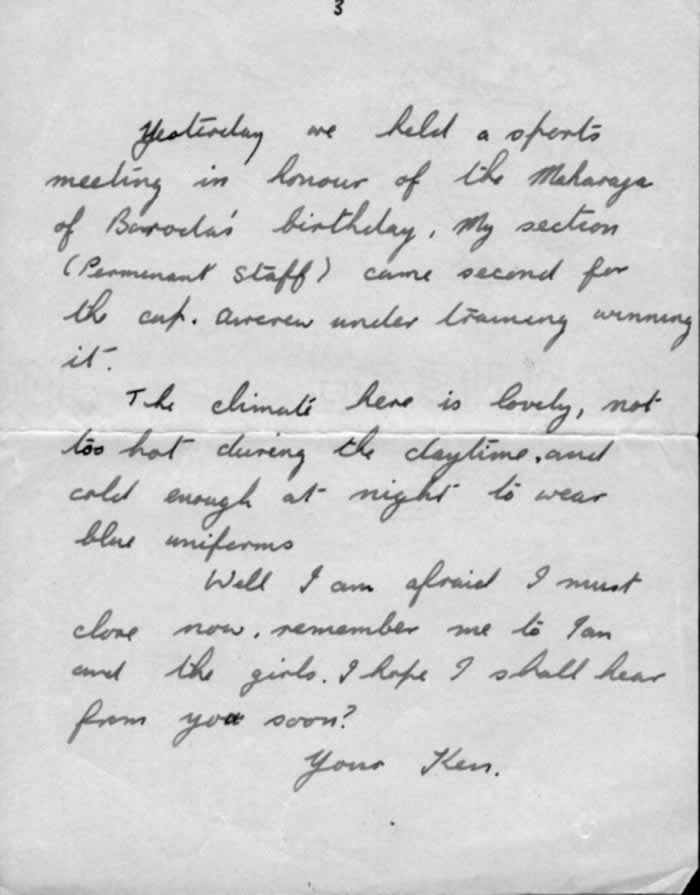 3
Yesterday we held a sports
meeting in honour of the Maharaja
of Baroda's birthday, My section
(Permenant Staff) came second for
the cup. Aircrew under training winning
it.
The climate here is lovely, not
too hot during the daytime, and
cold enough at night to wear
blue uniforms
Well I am afraid I must
close now, remember me to Ian
and the girls. I hope I shall hear
from you soon?
Your Ken.